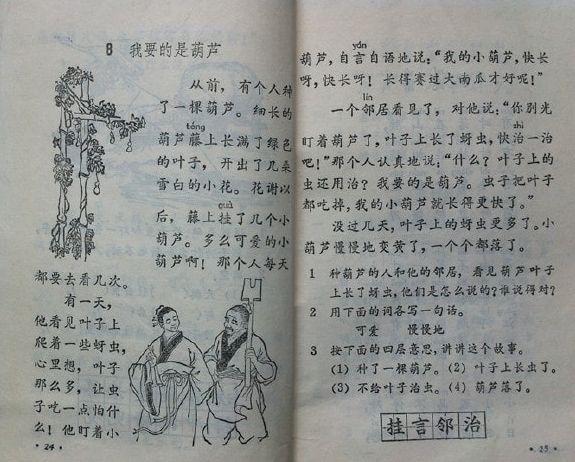 8 我要的是葫芦
从前，有个人种
了一棵葫芦。细长的
téng
葫芦藤上长满了绿色
的叶子，开出了几朵
雪白的小花。花谢以
guà
后，藤上挂了几个小
葫芦。多么可爱的小
葫芦啊！那个人每天
都要去看几次。
有一天，
他看见叶子上
爬着一些蚜虫，
心里想，叶子
那么多，让虫
子吃一点怕什
么！他盯着小
·24·
yán
葫芦，自言自语地说：“我的小葫芦，快长
呀，快长呀！长得赛过大南瓜才好呢！”
lín
一个邻居看见了，对他说：“你别光
zhì
盯着葫芦了，叶子上长了蚜虫，快治一治
吧！”那个人认真地说：“什么？叶子上的
虫还用治？我要的是葫芦。虫子把叶子
都吃掉，我的小葫芦就长得更快了。”
没过几天，叶子上的蚜虫更多了。小
葫芦慢慢地变黄了，一个个都落了。
1 种葫芦的人和他的邻居，看见葫芦叶子
上长了蚜虫，他们是怎么说的？谁说得对？
2 用下面的词各写一句话。
可爱 慢慢地
3 按下面的四层意思，讲讲这个故事。
（1）种了一棵葫芦。（2）叶子上长虫了。
（3）不给叶子治虫。（4）葫芦落了。
挂言邻治
·25·